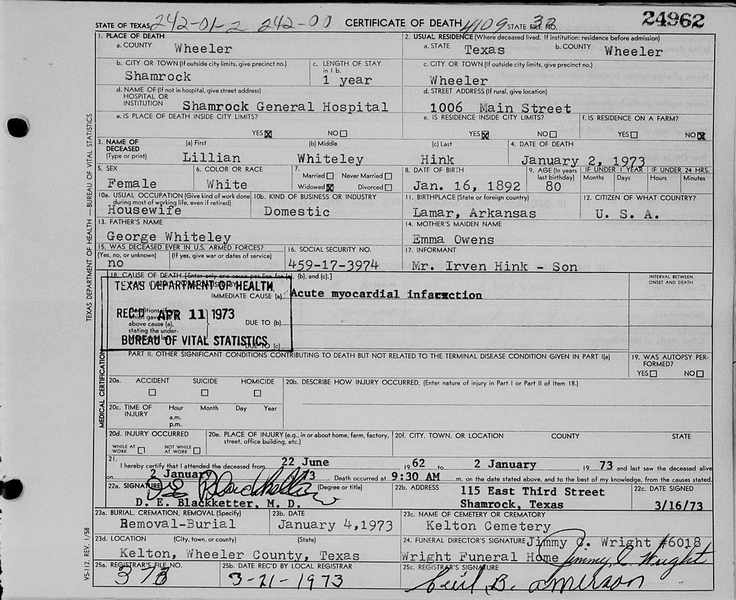 STATE OF TEXAS 242-01-2 242-00 CERTIFICATE OF DEATH 4109 STATE FILE NO. 38 24962
1. PLACE OF DEATH
a. COUNTY Wheeler
2. USUAL RESIDENCE (Where deceased lived. If institution: residence before admission)
a. STATE Texas b. COUNTY Wheeler
b. CITY OR TOWN (If outside city limits, give precinct no.)
Shamrock
c. LENGTH OF STAY
in 1 b.
1 year
c. CITY OR TOWN (If outside city limits, give precinct no.)
Wheeler
d. NAME OF (If not in hospital, give street address)
HOSPITAL OR
INSTITUTION Shamrock General Hospital
d. STREET ADDRESS (If rural, give location)
1006 Main Street
e. IS PLACE OF DEATH INSIDE CITY LIMITS?
YES☒ NO☐
e. IS RESIDENCE INSIDE CITY LIMITS?
YES☒ NO☐
f. IS RESIDENCE ON A FARM?
YES☐ NO☒
3. NAME OF
DECEASED
(Type or print)
(a) First (b) Middle (c) Last
Lillian Whiteley Hink
4. DATE OF DEATH
January 2, 1973
5. SEX
Female
6. COLOR OR RACE
White
7.
Married☐ Never Married☐
Widowed☒ Divorced☐
8. DATE OF BIRTH
Jan. 16, 1892
9. AGE (In years
last birthday)
80
IF UNDER 1 YEAR IF UNDER 24 HRS.
Months Days Hours Minutes
10a. USUAL OCCUPATION (Give kind of work done
during most of working life, even if retired)
Housewife
10b. KIND OF BUSINESS OR INDUSTRY
Domestic
11. BIRTHPLACE (State or foreign country)
Lamar, Arkansas
12. CITIZEN OF WHAT COUNTRY?
U. S. A.
13. FATHER'S NAME
George Whiteley
14. MOTHER'S MAIDEN NAME
Emma Owens
15. WAS DECEASED EVER IN U.S. ARMED FORCES?
(Yes, no, or unknown) (If yes, give war or dates of service)
no
16. SOCIAL SECURITY NO.
459-17-3974
17. INFORMANT
Mr. Irven Hink - Son
18. CAUSE OF DEATH [Enter only one cause per line for (a), (b), and (c).]
INTERVAL BETWEEN
ONSET AND DEATH
IMMEDIATE CAUSE (a) Acute myocardial infarction
TEXAS DEPARTMENT OF HEALTH
REC'D APR 11 1973
BUREAU OF VITAL STATISTICS
above cause (a),
stating the under-
DUE TO (b)
DUE TO (c)
PART II. OTHER SIGNIFICANT CONDITIONS CONTRIBUTING TO DEATH BUT NOT RELATED TO THE TERMINAL DISEASE CONDITION GIVEN IN PART I(a)
19. WAS AUTOPSY PER-
FORMED?
YES☐ NO☐
20a. ACCIDENT SUICIDE HOMICIDE
☐ ☐ ☐
20b. DESCRIBE HOW INJURY OCCURRED. (Enter nature of injury in Part I or Part II of Item 18.)
20c. TIME OF
INJURY
Hour Month Day Year
a.m.
p.m.
20d. INJURY OCCURRED
WHILE AT
WORK ☐
NOT WHILE
AT WORK ☐
20e. PLACE OF INJURY (e.g., in or about home, farm, factory,
street, office building, etc.)
20f. CITY, TOWN, OR LOCATION COUNTY STATE
21.
I hereby certify that I attended the deceased from 22 June 1962 to 2 January 1973 and last saw the deceased alive
on 2 January 73 Death occurred at 9:30 AM m. on the date stated above, and to the best of my knowledge, from the causes stated.
22a. SIGNATURE D E Blackketter (Degree or title)
D. E. Blackketter, M. D.
22b. ADDRESS 115 East Third Street
Shamrock, Texas
22c. DATE SIGNED
3/16/73
23a. BURIAL, CREMATION, REMOVAL (Specify)
Removal-Burial
23b. DATE
January 4,1973
23c. NAME OF CEMETERY OR CREMATORY
Kelton Cemetery
23d. LOCATION (City, town, or county) (State)
Kelton, Wheeler County, Texas
24. FUNERAL DIRECTOR'S SIGNATURE Jimmy C. Wright #6018
Wright Funeral Home Jimmy C Wright
25a. REGISTRAR'S FILE NO.
373
25b. DATE REC'D BY LOCAL REGISTRAR
3-21-1973
25c. REGISTRAR'S SIGNATURE
Ceil B. Emerson
TEXAS DEPARTMENT OF HEALTH — BUREAU OF VITAL STATISTICS
MEDICAL CERTIFICATION
VS-112, REV. 1/58